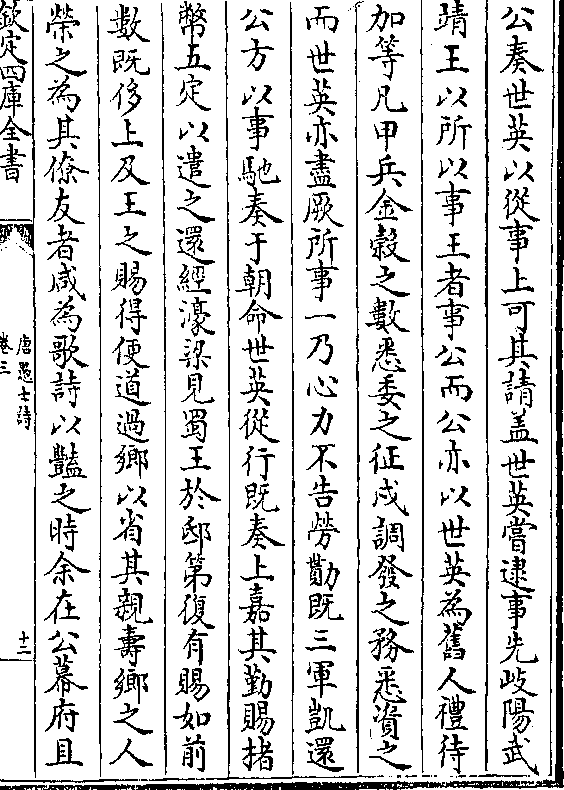 公奏世英以從事上可其請盖世英嘗逮事先岐陽武
靖王以所以事王者事公而公亦以世英為舊人禮待
加等凡甲兵金榖之數悉委之征戍調發之務悉資之
而世英亦盡厥所事一乃心力不告勞勩既三軍凱還
公方以事馳奏于朝命世英從行既奏上嘉其勤賜楮
幣五定以遣之還經濠梁見蜀王於邸第復有賜如前
數既侈上及王之賜得便道過鄉以省其親壽鄉之人
榮之為其僚友者咸為歌詩以豔之時余在公幕府且
欽定四庫全書
唐愚士詩
卷三
十二